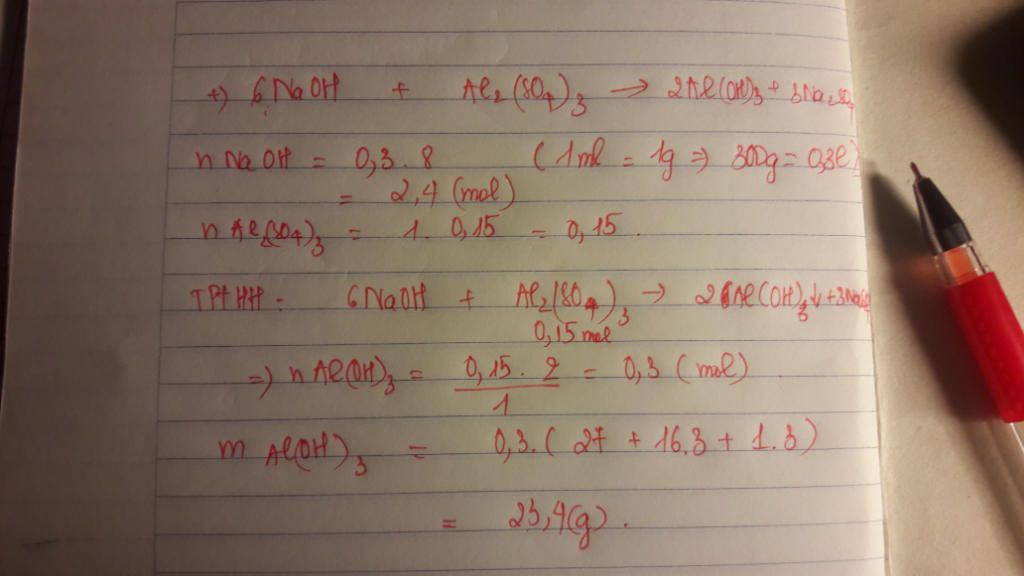 +) 6NaOH + Al₂(SO₄)₃ → 2Al(OH)₃ + 3Na₂SO₄
n NaOH = 0,3 . 8 (1ml = 1g ⇒ 300g = 0,3l)
= 2,4 (mol)
n Al₂(SO₄)₃ = 1 . 0,15 = 0,15 .
PTHH : 6NaOH + Al₂(SO₄)₃ → 2Al(OH)₃↓ +
0,15 mol
=) n Al(OH)₃ = 0,15 . 2 / 1 = 0,3 (mol)
m Al(OH)₃ = 0,3 . ( 27 + 16.3 + 1.3 )
= 23,4(g) .